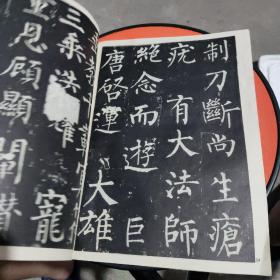 制刀斷尚生瘡
疣有大法師
絕念而遊巨
唐啓運大雄
三乘迭耀寵
重恩顧顯闡讚